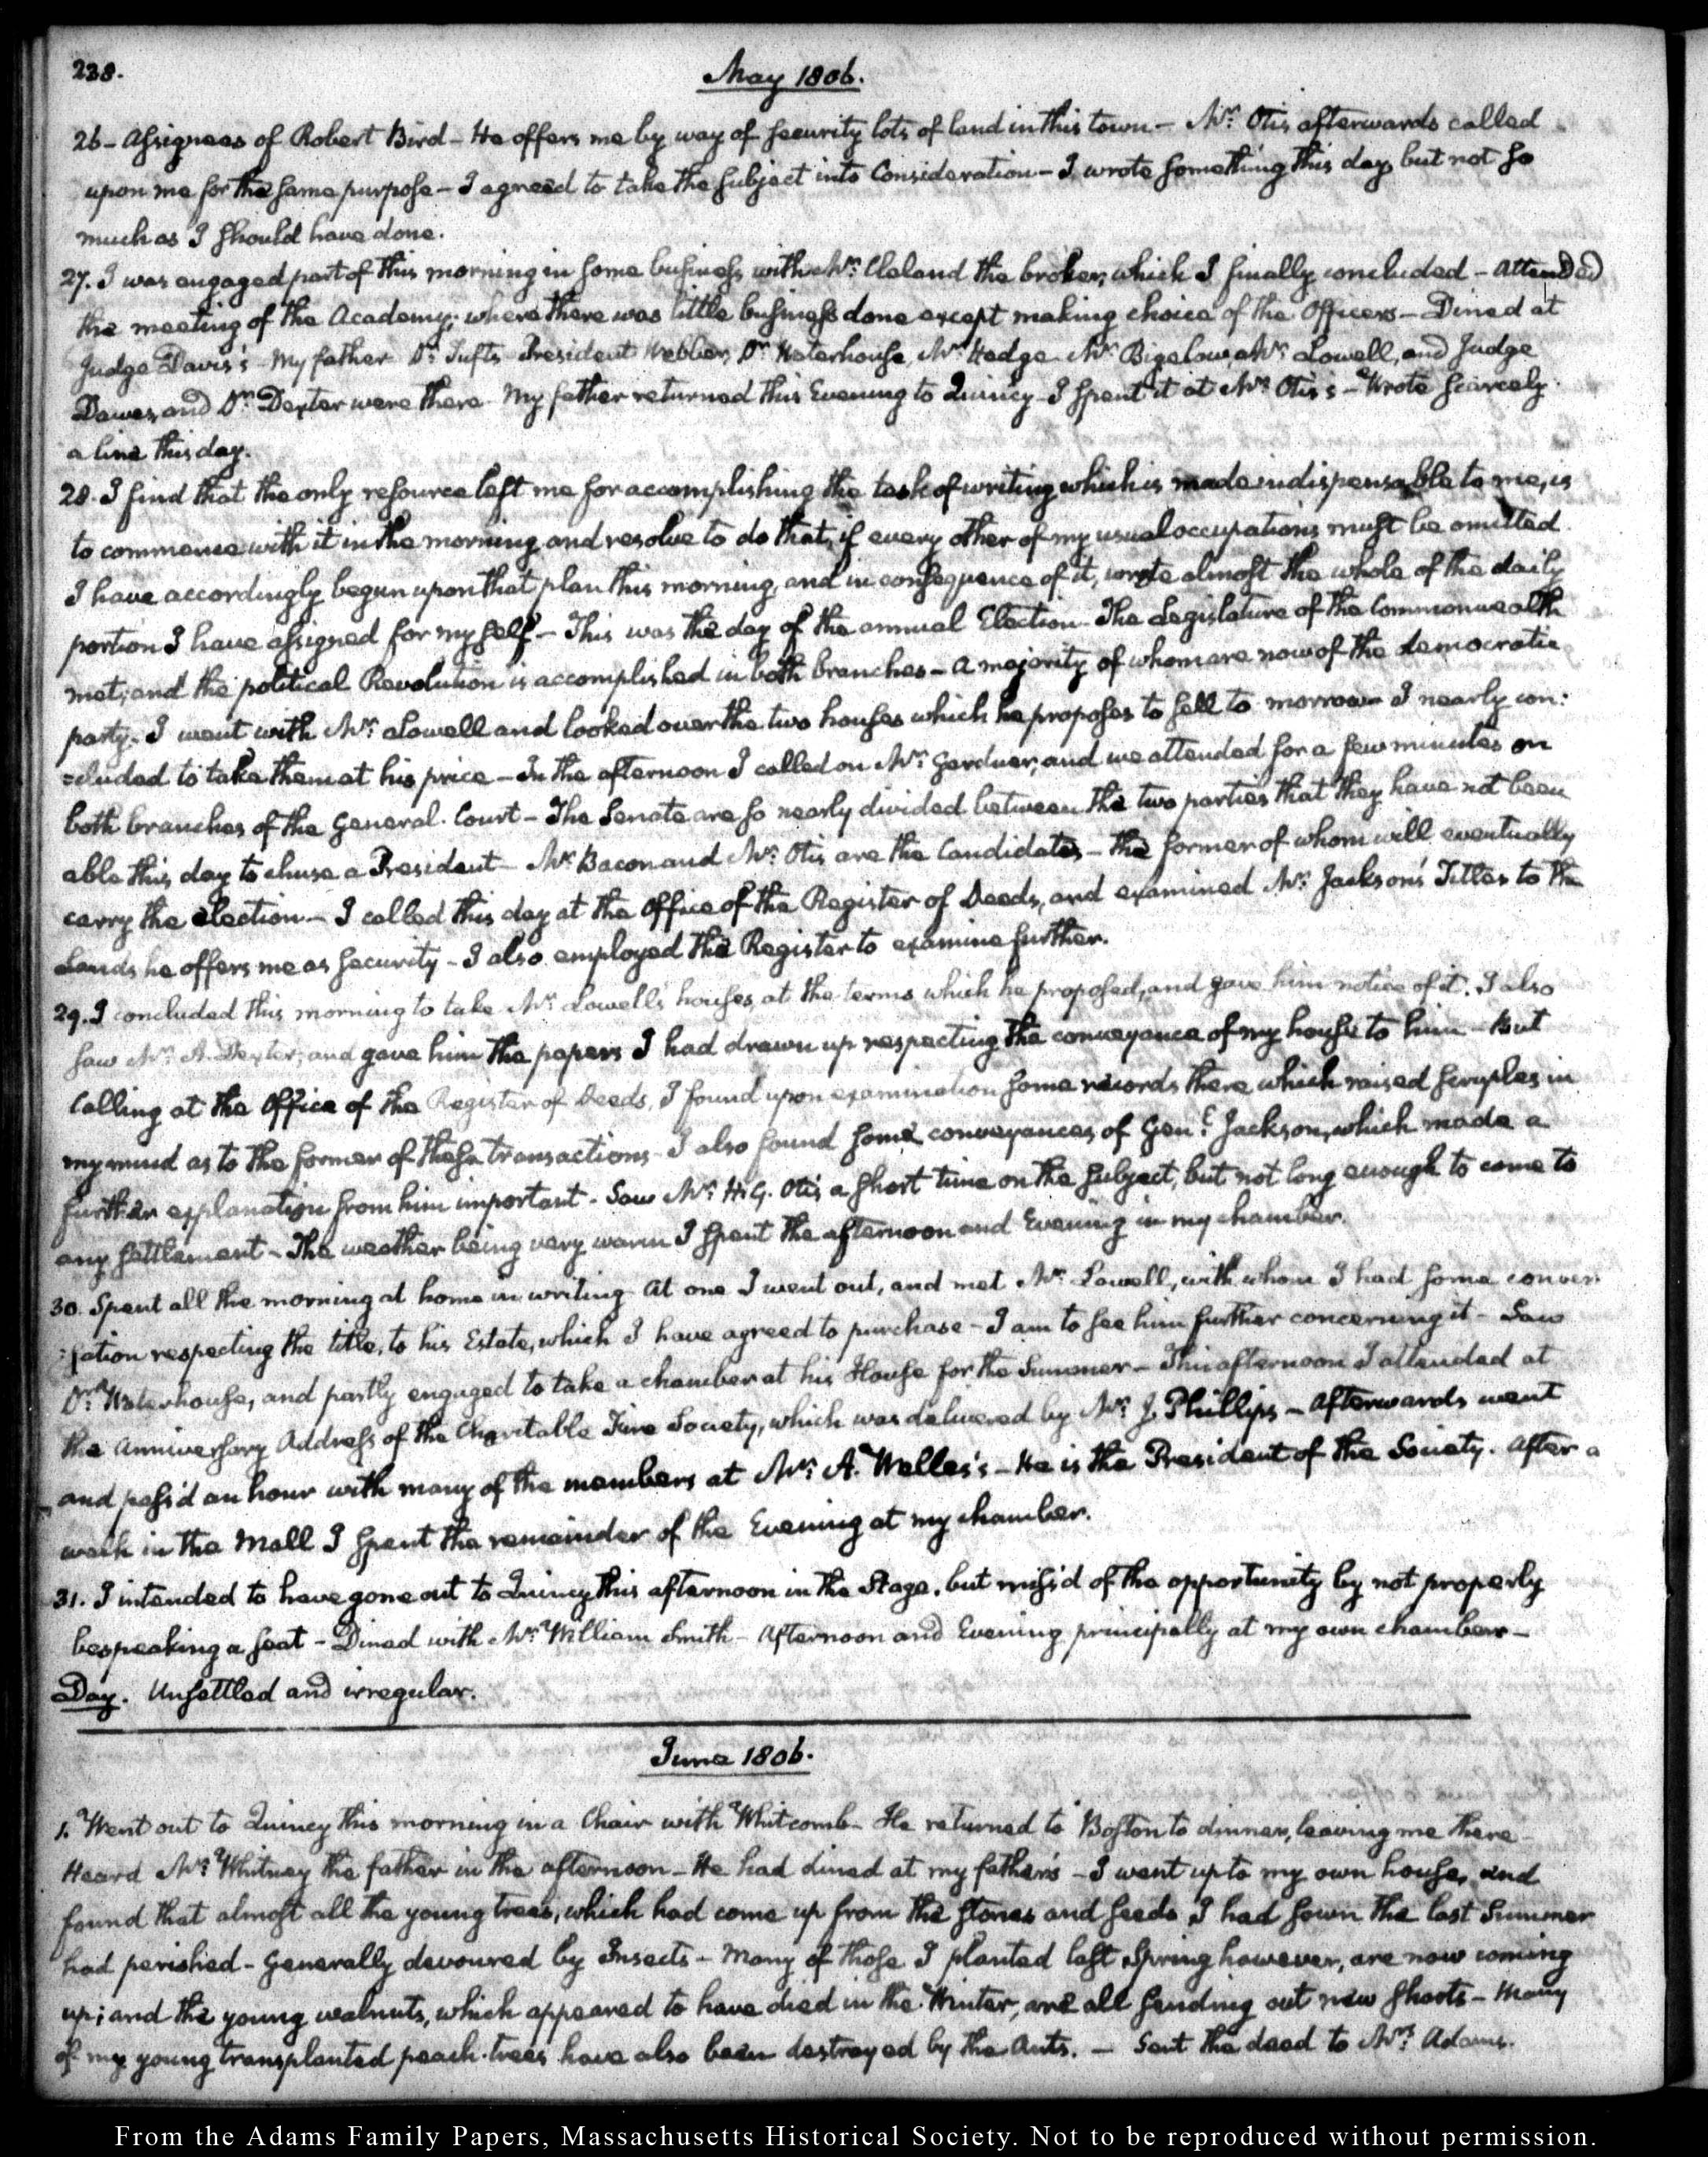 238.
May 1806.
26 - Assignees of Robert Bird - He offers me by way of security lots of land in this town - Mr. Otis afterwards called
upon me for the same purpose - I agreed to take the subject into Consideration - I wrote something this day, but not so
much as I should have done.
27. I was engaged part of this morning in some business with Mr. Cleland the broker, which I finally concluded - Attended
the meeting of the Academy; where there was little business done except making choice of the Officers - Dined at
Judge Davis's - My father Dr. Tufts President Webber, Dr. Waterhouse, Mr. Hedge Mr. Bigelow, Mr. Lowell, and Judge
Dawes, and Dr. Dexter were there - My father returned this Evening to Quincy - I spent it at Mr. Otis's - Wrote scarcely
a line this day.
28. I find that the only resource left me for accomplishing the task of writing which is made indispensable to me, is
to commence with it in the morning and resolve to do that, if every other of my usual occupations must be omitted.
I have accordingly begun upon that plan this morning, and in consequence of it, wrote almost the whole of the daily
portion I have assigned for myself - This was the day of the annual Election - The Legislature of the Commonwealth
met; and the political Revolution is accomplished in both branches - a majority of whom are now of the democratic
party - I went with Mr. Lowell and looked over the two houses which he proposes to sell to morrow - I nearly con:
=cluded to take them at his price - In the afternoon I called on Mr. Gardner, and we attended for a few minutes on
both branches of the General Court - The Senate are so nearly divided between the two parties that they have not been
able this day to chuse a President - Mr. Bacon and Mr. Otis are the Candidates - the former of whom will eventually
carry the election - I called this day at the Office of the Register of Deeds, and examined Mr. Jackson's Titles to the
Lands he offers me as security - I also employed the Register to examine further.
29. I concluded this morning to take Mr. Lowell's houses, at the terms which he proposed, and gave him notice of it. I also
saw Mr. A. Dexter; and gave him the papers I had drawn up respecting the conveyance of my house to him - But
calling at the Office of the Register of Deeds, I found upon examination some records there which raised scruples in
my mind as to the former of these transactions - I also found some conveyances of Genl. Jackson, which made a
further explanation from him important - Saw Mr. H. G. Otis a short time on the subject, but not long enough to come to
any settlement - The weather being very warm I spent the afternoon and Evening in my chamber.
30. Spent all the morning at home in writing - At one I went out, and met Mr. Lowell, with whom I had some conver
:sation respecting the title, to his Estate, which I have agreed to purchase - I am to see him further concerning it - Saw
Dr. Waterhouse, and partly engaged to take a chamber at his House for the Summer - This afternoon I attended at
the Anniversary Address of the Charitable Fire Society, which was delivered by Mr. J. Phillips - Afterwards went
and pass'd an hour with many of the members at Mr. A. Welles's - He is the President of the Society. After a
walk in the Mall I spent the remainder of the Evening at my chamber.
31. I intended to have gone out to Quincy this afternoon in the Stage, but miss'd of the opportunity by not properly
bespeaking a seat - Dined with Mr. William Smith - Afternoon and Evening principally at my own chamber -
Day. Unsettled and irregular.
June 1806.
1. Went out to Quincy this morning in a Chair with Whitcomb - He returned to Boston to dinner, leaving me there -
Heard Mr. Whitney the father in the afternoon - He had dined at my father's - I went up to my own house, and
found that almost all the young trees, which had come up from the stones and seeds I had sown the last Summer
had perished - Generally devoured by Insects - Many of those I planted last Spring however, are now coming
up; and the young walnuts, which appeared to have died in the Winter, are all sending out new shoots - Many
of my young transplanted peach-trees have also been destroyed by the Ants. - Sent the deed to Mrs. Adams.
From the Adams Family Papers, Massachusetts Historical Society. Not to be reproduced without permission.